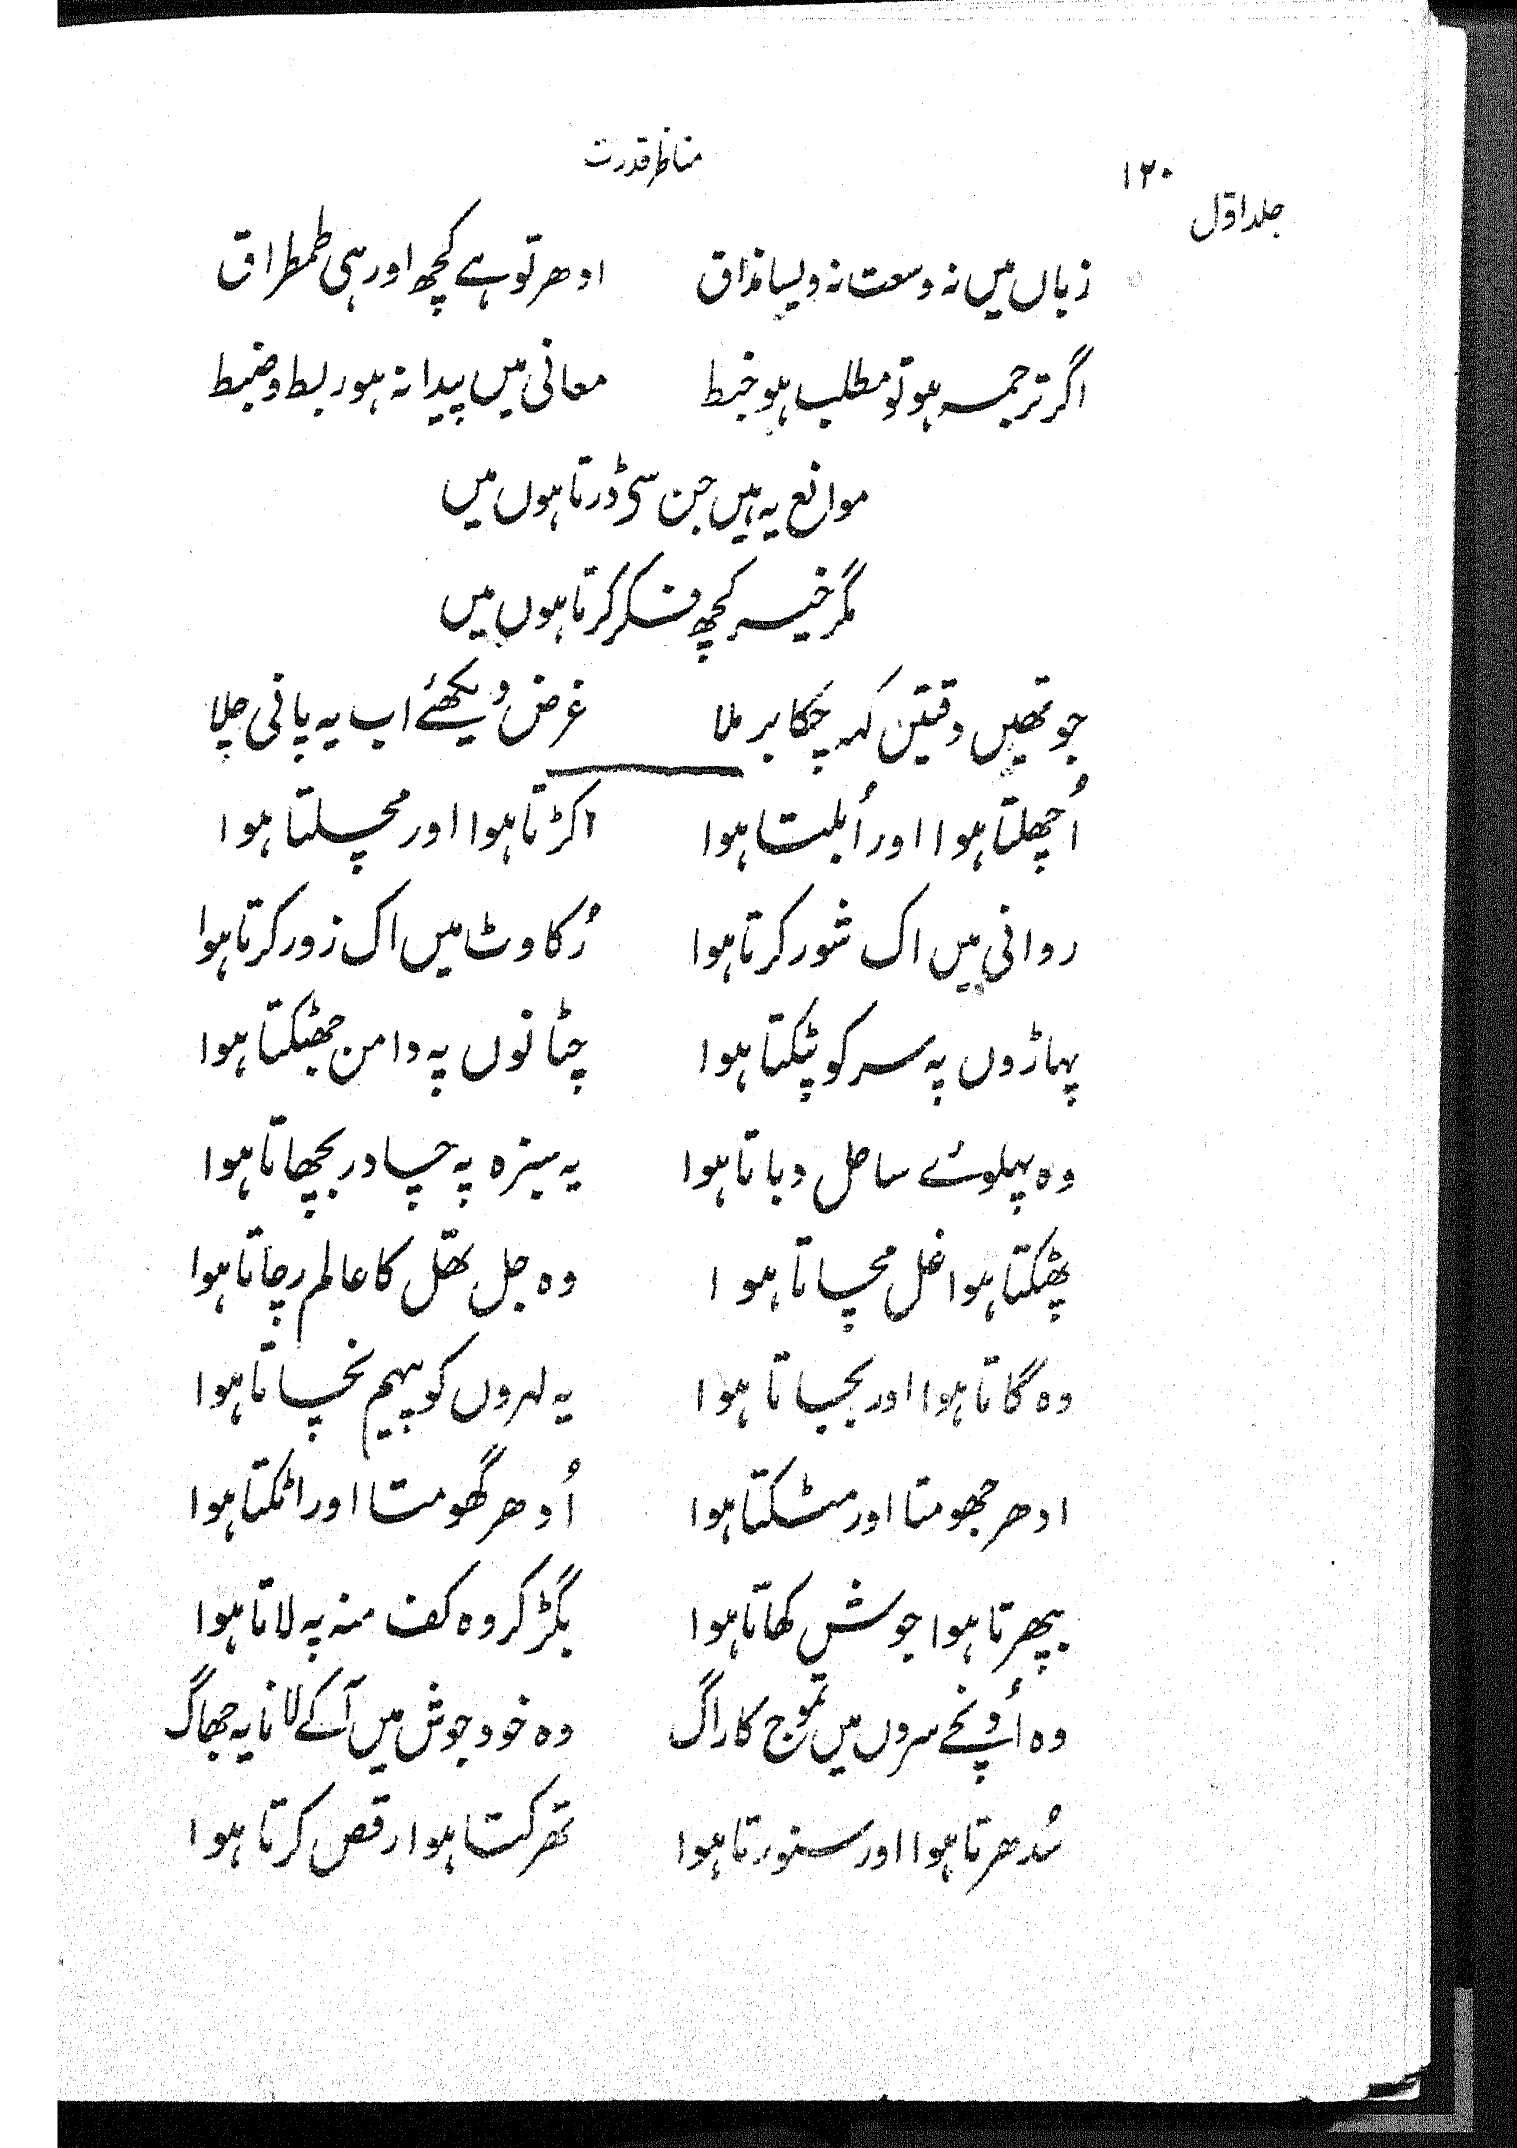 مناظر قدرت
۱۲۰
جلد اول
زباں میں نہ وسعت نہ ویسا مذاق ادھر تو ہے کچھ اور ہی طمطراق
اگر ترجمہ ہو تو مطلب ہو خبط معانی میں پیدا نہ ہو ربط و ضبط
موانع یہ ہیں جن سی ڈرتا ہوں میں
مگر خیر کچھ فکر کرتا ہوں میں
جو تھیں دقتیں کہہ چکا برملا غرض دیکھئے اب یہ پانی چلا
اُچھلتا ہوا اور اُبلتا ہوا اکڑتا ہوا اور مچلتا ہوا
روانی میں اک شور کرتا ہوا رُکاوٹ میں اک زور کرتا ہوا
پہاڑوں پہ سر کو پٹکتا ہوا چٹانوں پہ دامن جھٹکتا ہوا
وہ پہلوئے ساحل دباتا ہوا یہ سبزہ پہ چادر بچھاتا ہوا
پھٹکتا ہوا غل مچاتا ہوا وہ جل تھل کا عالم رچاتا ہوا
وہ گاتا ہوا اور بجاتا ہوا یہ لہروں کو پیہم نچاتا ہوا
ادھر جھومتا اور مٹکتا ہوا اُدھر گھومتا اور اٹکتا ہوا
بپھرتا ہوا جوش کھاتا ہوا بگڑ کر وہ کف منہ پہ لاتا ہوا
وہ اُونچے سروں میں تموج کا راگ وہ خود جوش میں آکے لانا یہ جھاگ
سُدھرتا ہوا اور سنورتا ہوا تھرکتا ہوا رقص کرتا ہوا